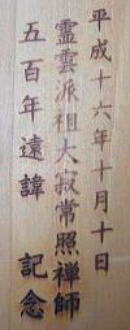 平成十六年十月十日
霊雲派祖大寂常照禅師
五百年遠諱 記念